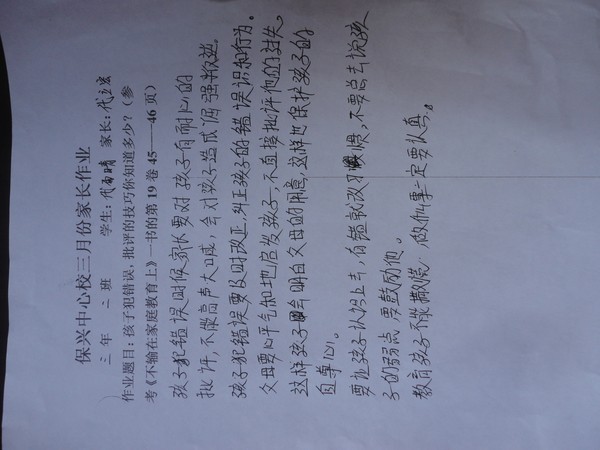 保兴中心校三月份家长作业
三年 二班 学生:代雨晴 家长:代立宏
作业题目:孩子犯错误,批评的技巧你知道多少?(参
考《不输在家庭教育上》一书的第19卷45——46页)
孩子犯错误时候家长要对孩子有耐心的
批评,不能高声大喊,会对孩子造成 强
孩子犯错误要及时改正,纠正孩子的错误识和行为。
父母要心平气和地启发孩子,不直接批评他的过失。
这样孩子会明白父母的用意,这样也保护孩子的
自尊心。
要让孩子认识上去,有错就改习惯,不要总去说孩
子的弱点要鼓励他。
教育孩子不能散漫,做啥事一定要认真。